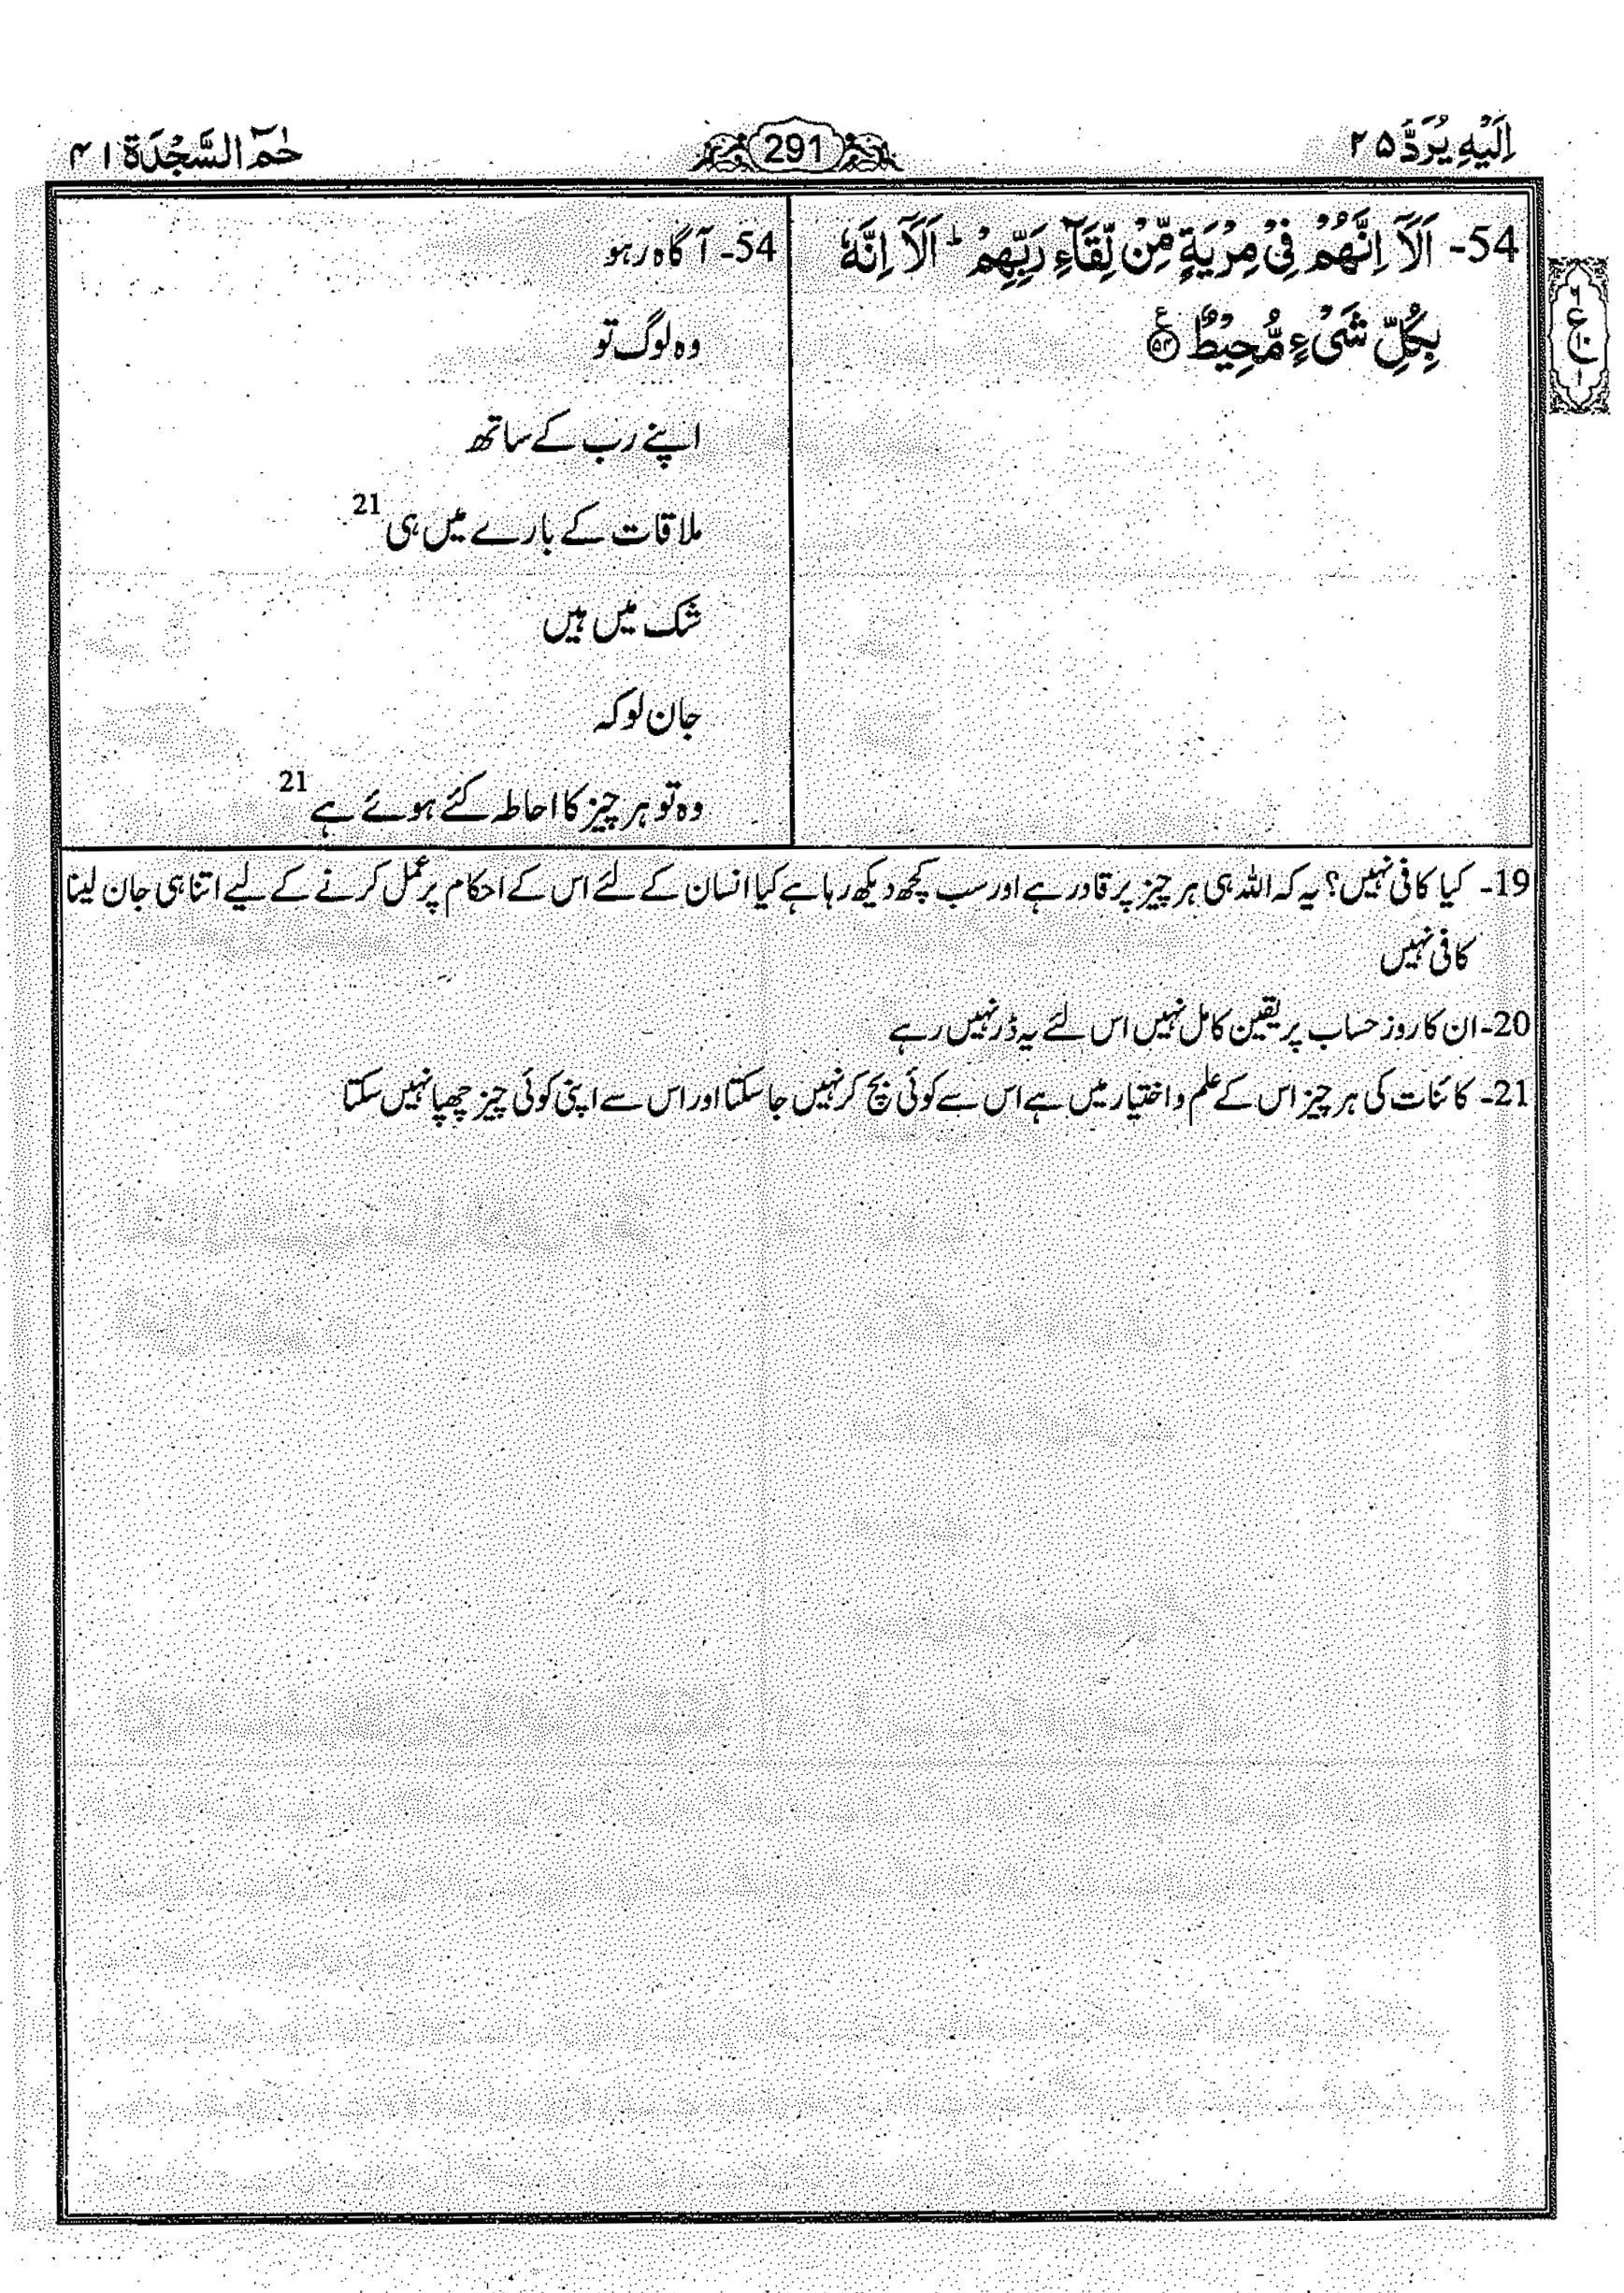 اِلَيْهِ يُرَدُّ ۲۵
291
حٰمٓ السَّجْدَة ۴۱
54- اَلَاۤ اِنَّهُمْ فِیْ مِرْیَةٍ مِّنْ لِّقَآءِ رَبِّهِمْ ؕ اَلَاۤ اِنَّهٗ
بِكُلِّ شَیْءٍ مُّحِیْطٌ ﴿۵۴﴾ ع
ع
54- آگاہ رہو
وہ لوگ تو
اپنے رب کے ساتھ
ملاقات کے بارے میں ہی 21
شک میں ہیں
جان لو کہ
وہ تو ہر چیز کا احاطہ کئے ہوئے ہے 21
19- کیا کافی نہیں؟ یہ کہ اللہ ہی ہر چیز پر قادر ہے اور سب کچھ دیکھ رہا ہے کیا انسان کے لئے اس کے احکام پر عمل کرنے کے لیے اتنا ہی جان لینا
کافی نہیں
20- ان کا روز حساب پر یقین کامل نہیں اس لئے یہ ڈر نہیں رہے
21- کائنات کی ہر چیز اس کے علم و اختیار میں ہے اس سے کوئی بچ کر نہیں جا سکتا اور اس سے اپنی کوئی چیز چھپا نہیں سکتا